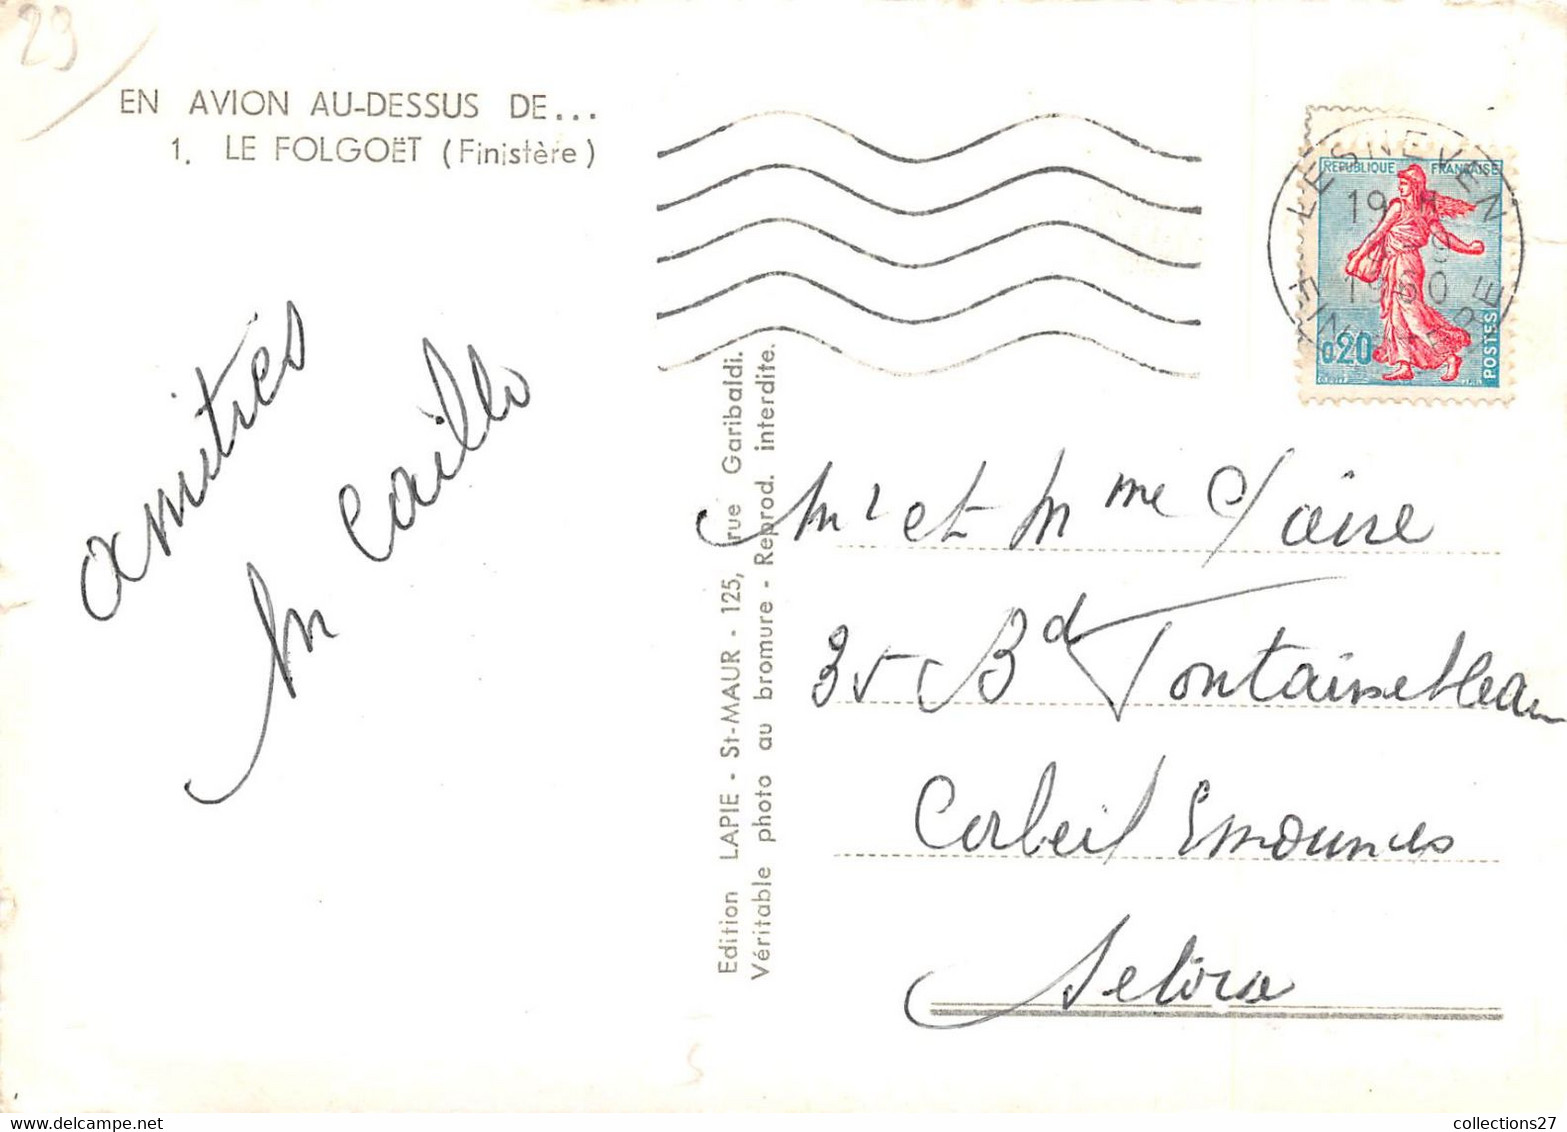 23
EN AVION AU-DESSUS DE...
1. LE FOLGOËT (Finistère)
amitiés
M Caillo
Edition LAPIE - St-MAUR - 125, rue Garibaldi.
Véritable photo au bromure - Reprod. interdite.
LESNEVEN
19 H
9
1960
FINISTERE
REPUBLIQUE FRANÇAISE
0,20
POSTES
Mr et Mme Claire
35 Bd Fontainebleau
Corbeil Essonnes
S et Oise
collections27